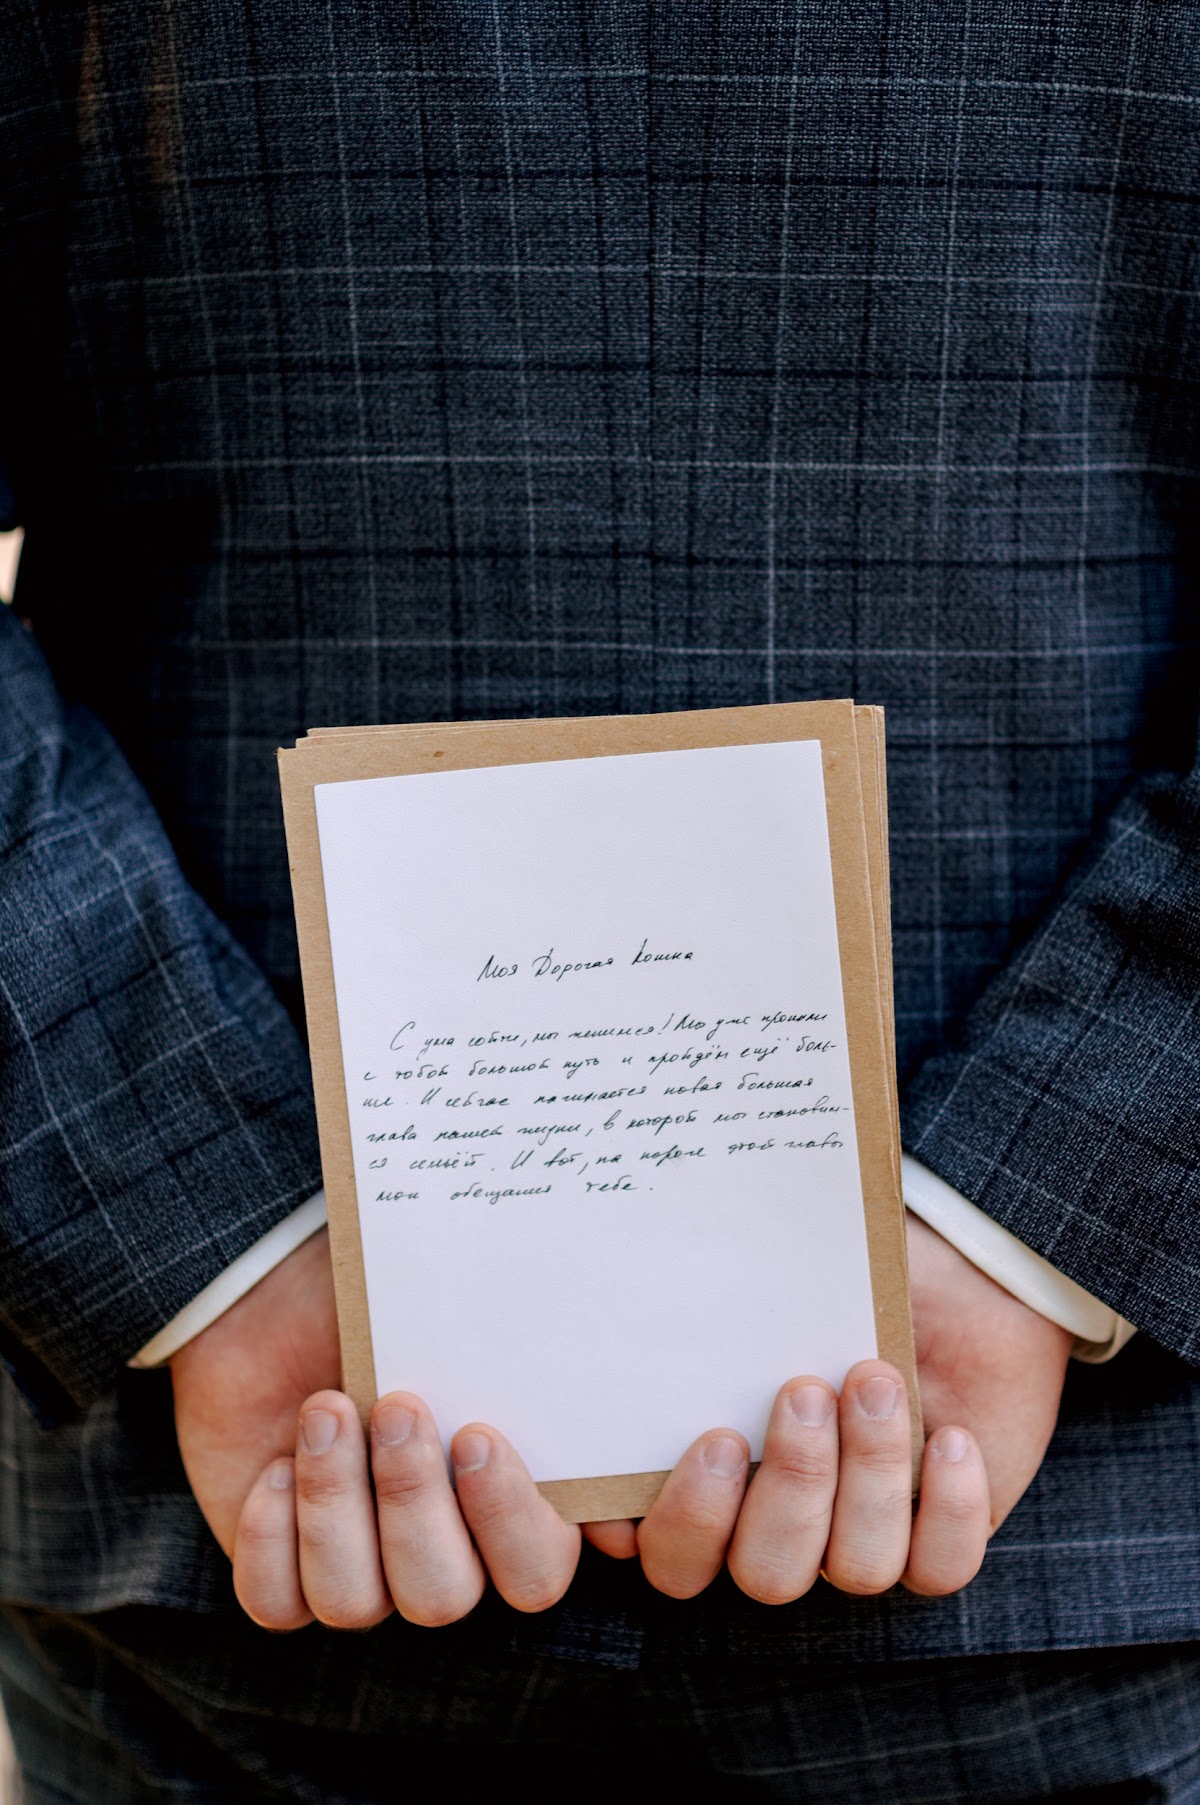 Моя Дорогая Кошка
С ума сойти, мы женимся! Мы уже прошли
с тобой большой путь и пройдём ещё боль-
ше. И сейчас начинается новая большая
глава нашей жизни, в которой мы становим-
ся семьёй. И вот, на пороге этой главы
мои обещания тебе.